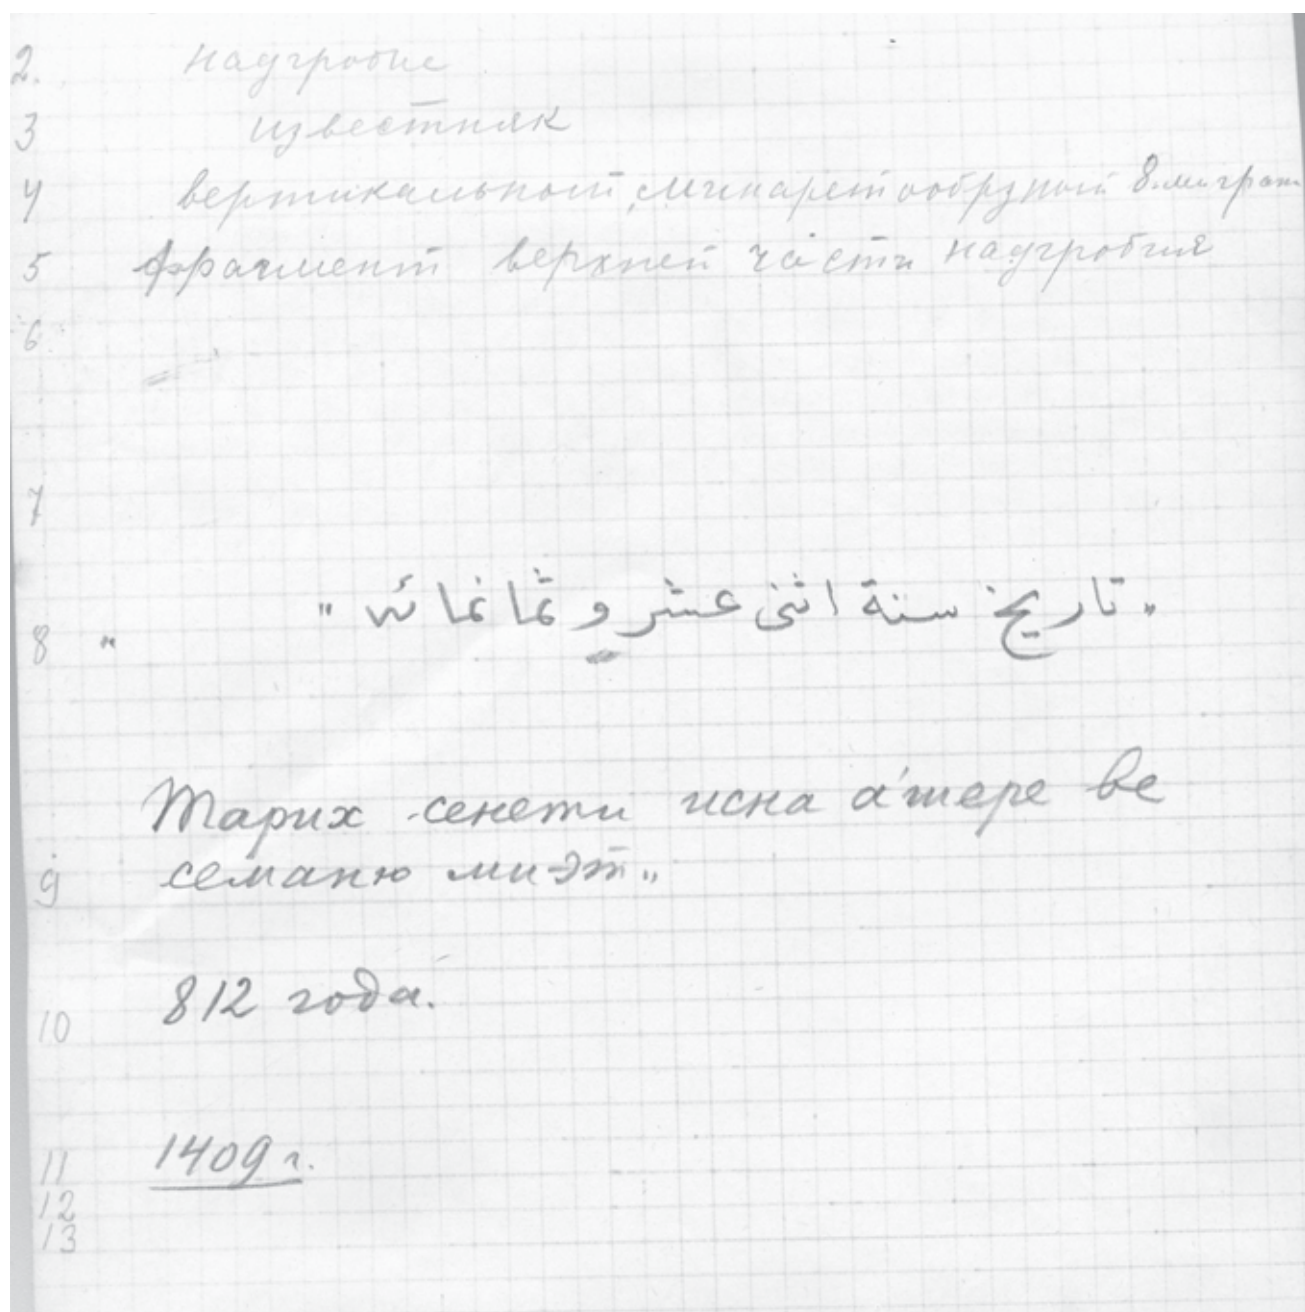 2. надгробие
3 известняк
4 вертикальный, минаретообразный 8-ми гран.
5 фрагмент верхней части надгробия
6
7
8 " „تاريخ سنة اثنى عشر و ثمانمائه"
Тарих сенети исна а'шере ве
9 семаню ми-эт„
10 812 года.
11 1409 г.
12
13